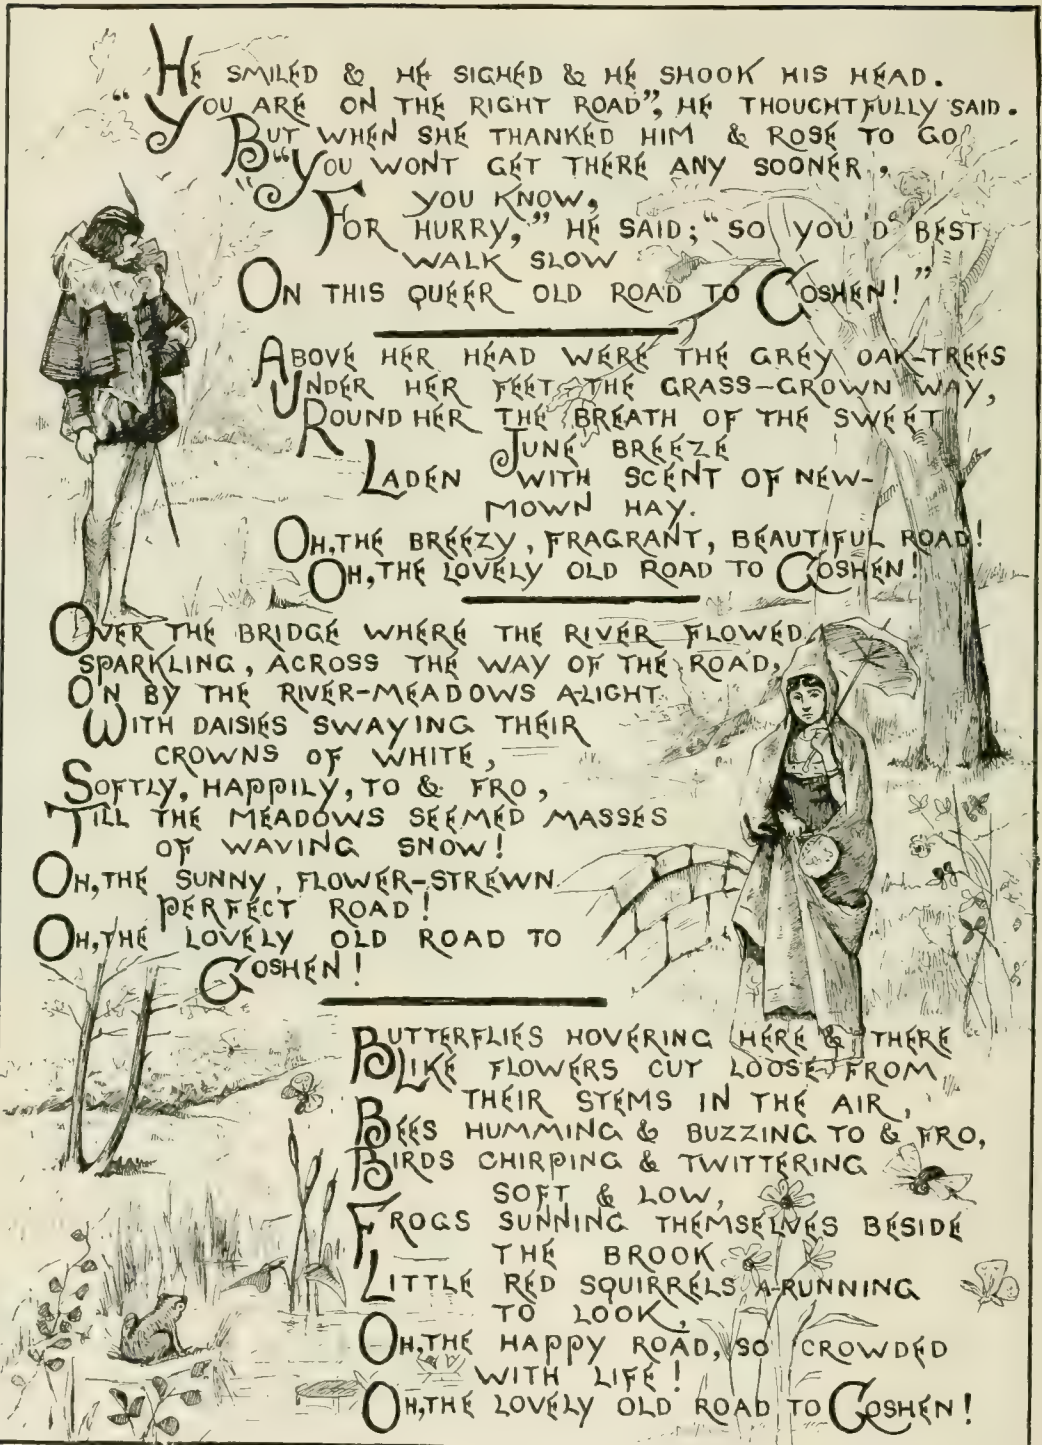 HE SMILED & HE SIGHED & HE SHOOK HIS HEAD.
"YOU ARE ON THE RIGHT ROAD", HE THOUGHTFULLY SAID.
BUT WHEN SHE THANKED HIM & ROSE TO GO
"YOU WONT GET THERE ANY SOONER,
YOU KNOW,
"FOR HURRY," HE SAID; "SO YOU'D BEST
WALK SLOW
ON THIS QUEER OLD ROAD TO GOSHEN!"
ABOVE HER HEAD WERE THE GREY OAK-TREES
UNDER HER FEET THE GRASS-GROWN WAY,
ROUND HER THE BREATH OF THE SWEET
JUNE BREEZE
LADEN WITH SCENT OF NEW-
MOWN HAY.
OH, THE BREEZY, FRAGRANT, BEAUTIFUL ROAD!
OH, THE LOVELY OLD ROAD TO GOSHEN!
OVER THE BRIDGE WHERE THE RIVER FLOWED
SPARKLING, ACROSS THE WAY OF THE ROAD,
ON BY THE RIVER-MEADOWS A-LIGHT
WITH DAISIES SWAYING THEIR
CROWNS OF WHITE,
SOFTLY, HAPPILY, TO & FRO,
TILL THE MEADOWS SEEMED MASSES
OF WAVING SNOW!
OH, THE SUNNY, FLOWER-STREWN
PERFECT ROAD!
OH, THE LOVELY OLD ROAD TO
GOSHEN!
BUTTERFLIES HOVERING HERE & THERE
LIKE FLOWERS CUT LOOSE FROM
THEIR STEMS IN THE AIR,
BEES HUMMING & BUZZING TO & FRO,
BIRDS CHIRPING & TWITTERING
SOFT & LOW,
FROGS SUNNING THEMSELVES BESIDE
THE BROOK
LITTLE RED SQUIRRELS A-RUNNING
TO LOOK,
OH, THE HAPPY ROAD, SO CROWDED
WITH LIFE!
OH, THE LOVELY OLD ROAD TO GOSHEN!